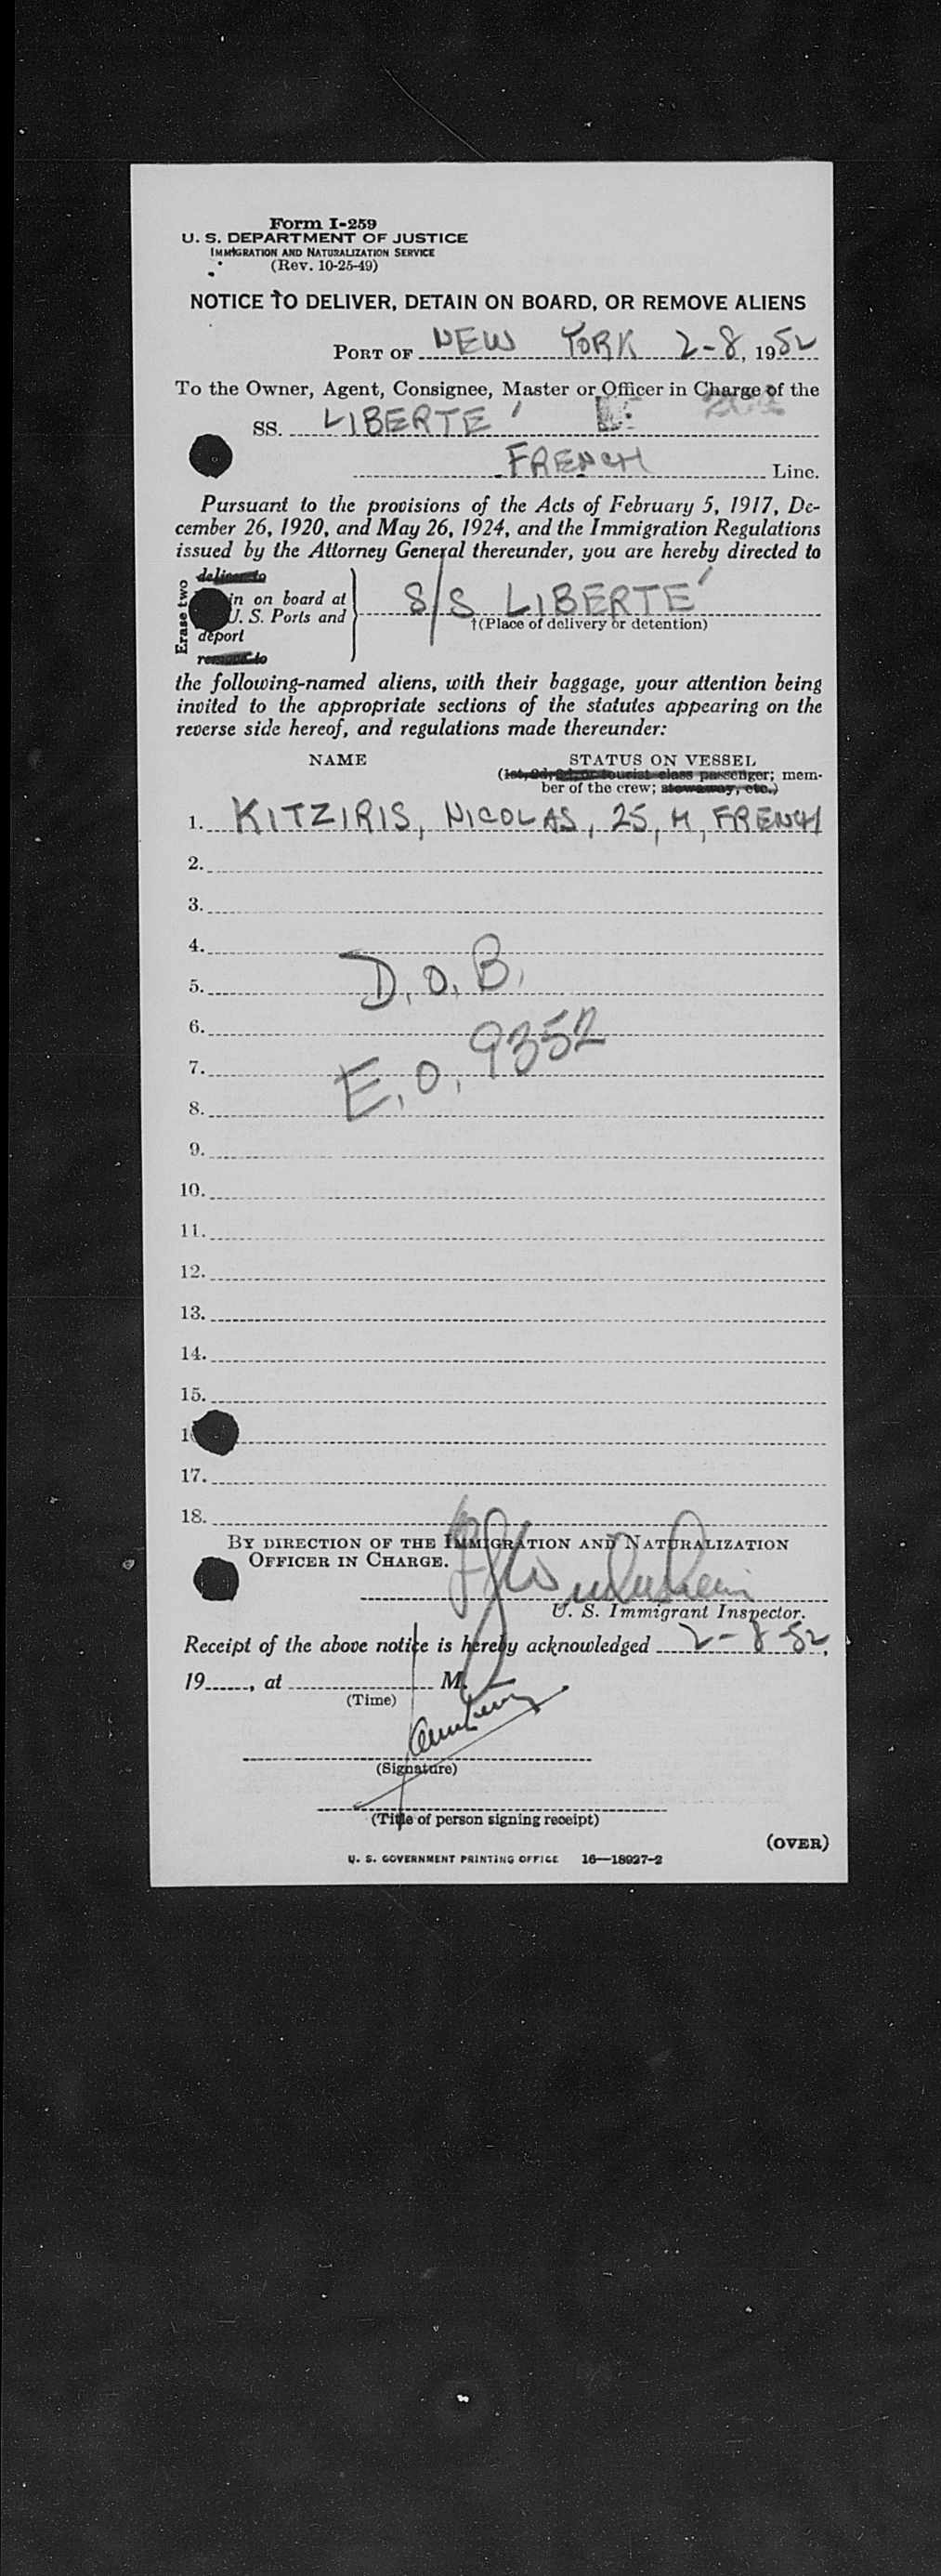 Form I-259
U. S. DEPARTMENT OF JUSTICE
IMMIGRATION AND NATURALIZATION SERVICE
(Rev. 10-25-49)
NOTICE TO DELIVER, DETAIN ON BOARD, OR REMOVE ALIENS
PORT OF NEW YORK 2-8, 1952
To the Owner, Agent, Consignee, Master or Officer in Charge of the
SS. LIBERTÉ
FRENCH Line.
Pursuant to the provisions of the Acts of February 5, 1917, De-
cember 26, 1920, and May 26, 1924, and the Immigration Regulations
issued by the Attorney General thereunder, you are hereby directed to
Erase two
deliver to
in on board at
U. S. Ports and
deport
remove to
S/S LIBERTÉ
†(Place of delivery or detention)
the following-named aliens, with their baggage, your attention being
invited to the appropriate sections of the statutes appearing on the
reverse side hereof, and regulations made thereunder:
NAME STATUS ON VESSEL
(1st, 2d, 3d, or tourist class passenger; mem-
ber of the crew; stowaway, etc.)
1. KITZIRIS, NICOLAS, 25, M, FRENCH
2.
3.
4.
D.O.B.
5.
6.
E.O. 9352
7.
8.
9.
10.
11.
12.
13.
14.
15.
1
17.
18.
BY DIRECTION OF THE IMMIGRATION AND NATURALIZATION
OFFICER IN CHARGE.
U. S. Immigrant Inspector.
Receipt of the above notice is hereby acknowledged 2-8-52,
19, at M.
(Time)
(Signature)
(Title of person signing receipt)
(OVER)
U. S. GOVERNMENT PRINTING OFFICE 16—18927-2